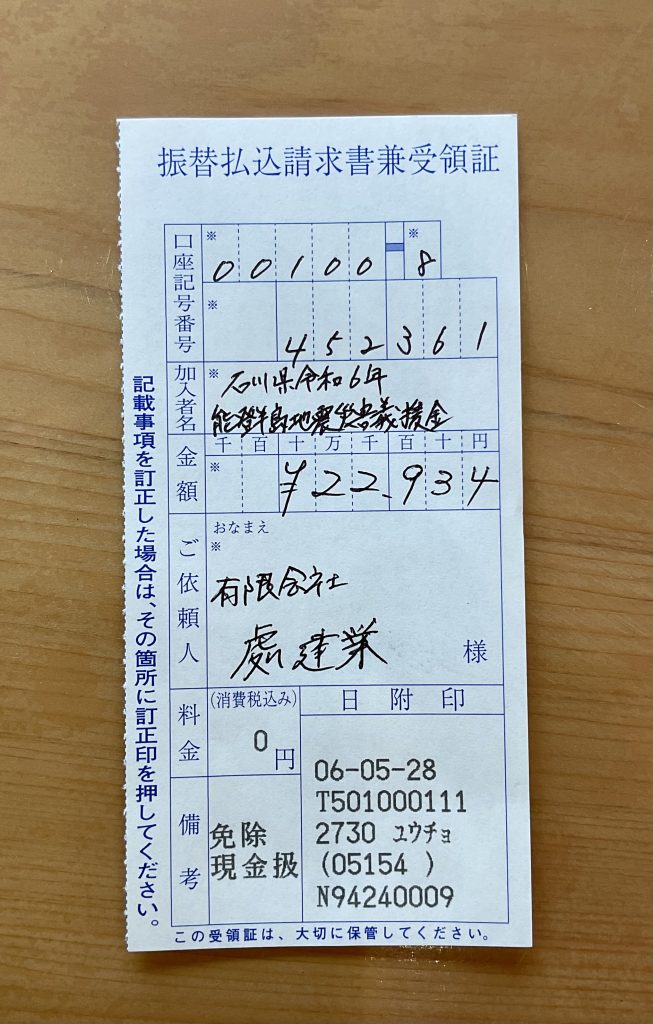 振替払込請求書兼受領証
口座記号番号
※ 00100-8 ※
※ 452361
加入者名
※ 石川県令和6年
能登半島地震災害義援金
金額
千百十万千百十円
※ ¥22,934
ご依頼人
おなまえ
※
有限会社
處建業 様
料金
(消費税込み)
0円
備考
免除
現金扱
日附印
06-05-28
T501000111
2730 ユウチョ
(05154 )
N94240009
記載事項を訂正した場合は、その箇所に訂正印を押してください。
この受領証は、大切に保管してください。